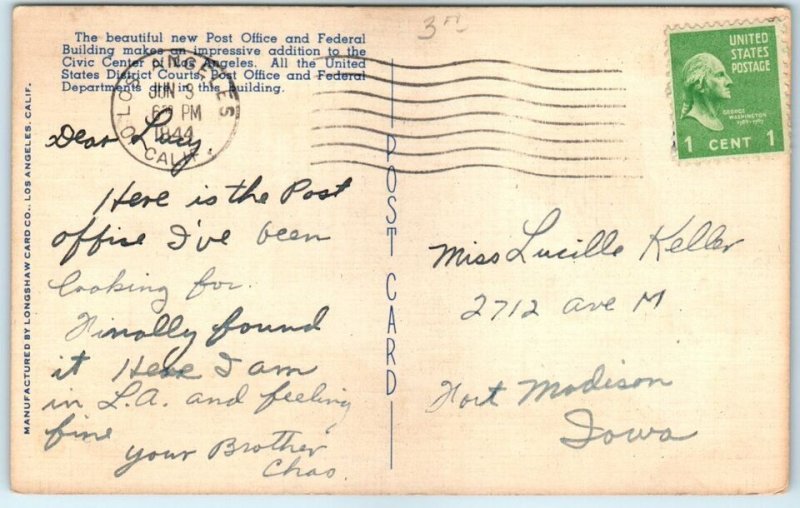 The beautiful new Post Office and Federal
Building makes an impressive addition to the
Civic Center of Los Angeles. All the United
States District Courts, Post Office and Federal
Departments are in this building.
LOS ANGELES
JUN 3
6 PM
1944
CALIF.
3
UNITED
STATES
POSTAGE
GEORGE
WASHINGTON
1 CENT 1
MANUFACTURED BY LONGSHAW CARD CO., LOS ANGELES, CALIF.
Dear Lucy
Here is the Post
offise I've been
looking for.
Finally found
it Here I am
in L.A. and feeling
fine
your Brother
Chas.
POST CARD
Miss Lucille Keller
2712 Ave M
Fort Madison
Iowa